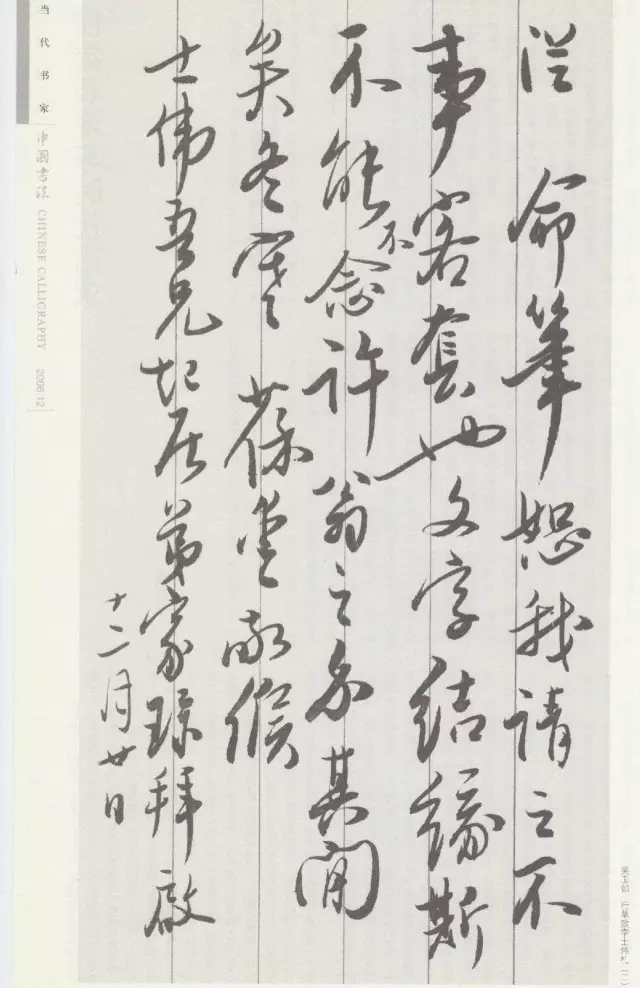 命筆恕我請之不
事客套也文字結緣斯
不能不念許翁之其間
矣冬寒 葆愛敬候
士偉吾兄起居 弟家琭拜啟
十二月廿日
吴玉如 行草致李士伟札(二)
当代书家
中國書法 CHINESE CALLIGRAPHY 2006.12